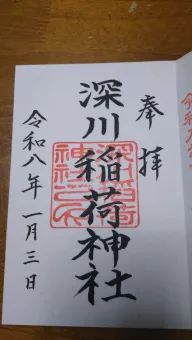 奉拝
深川稲荷神社
令和八年一月三日